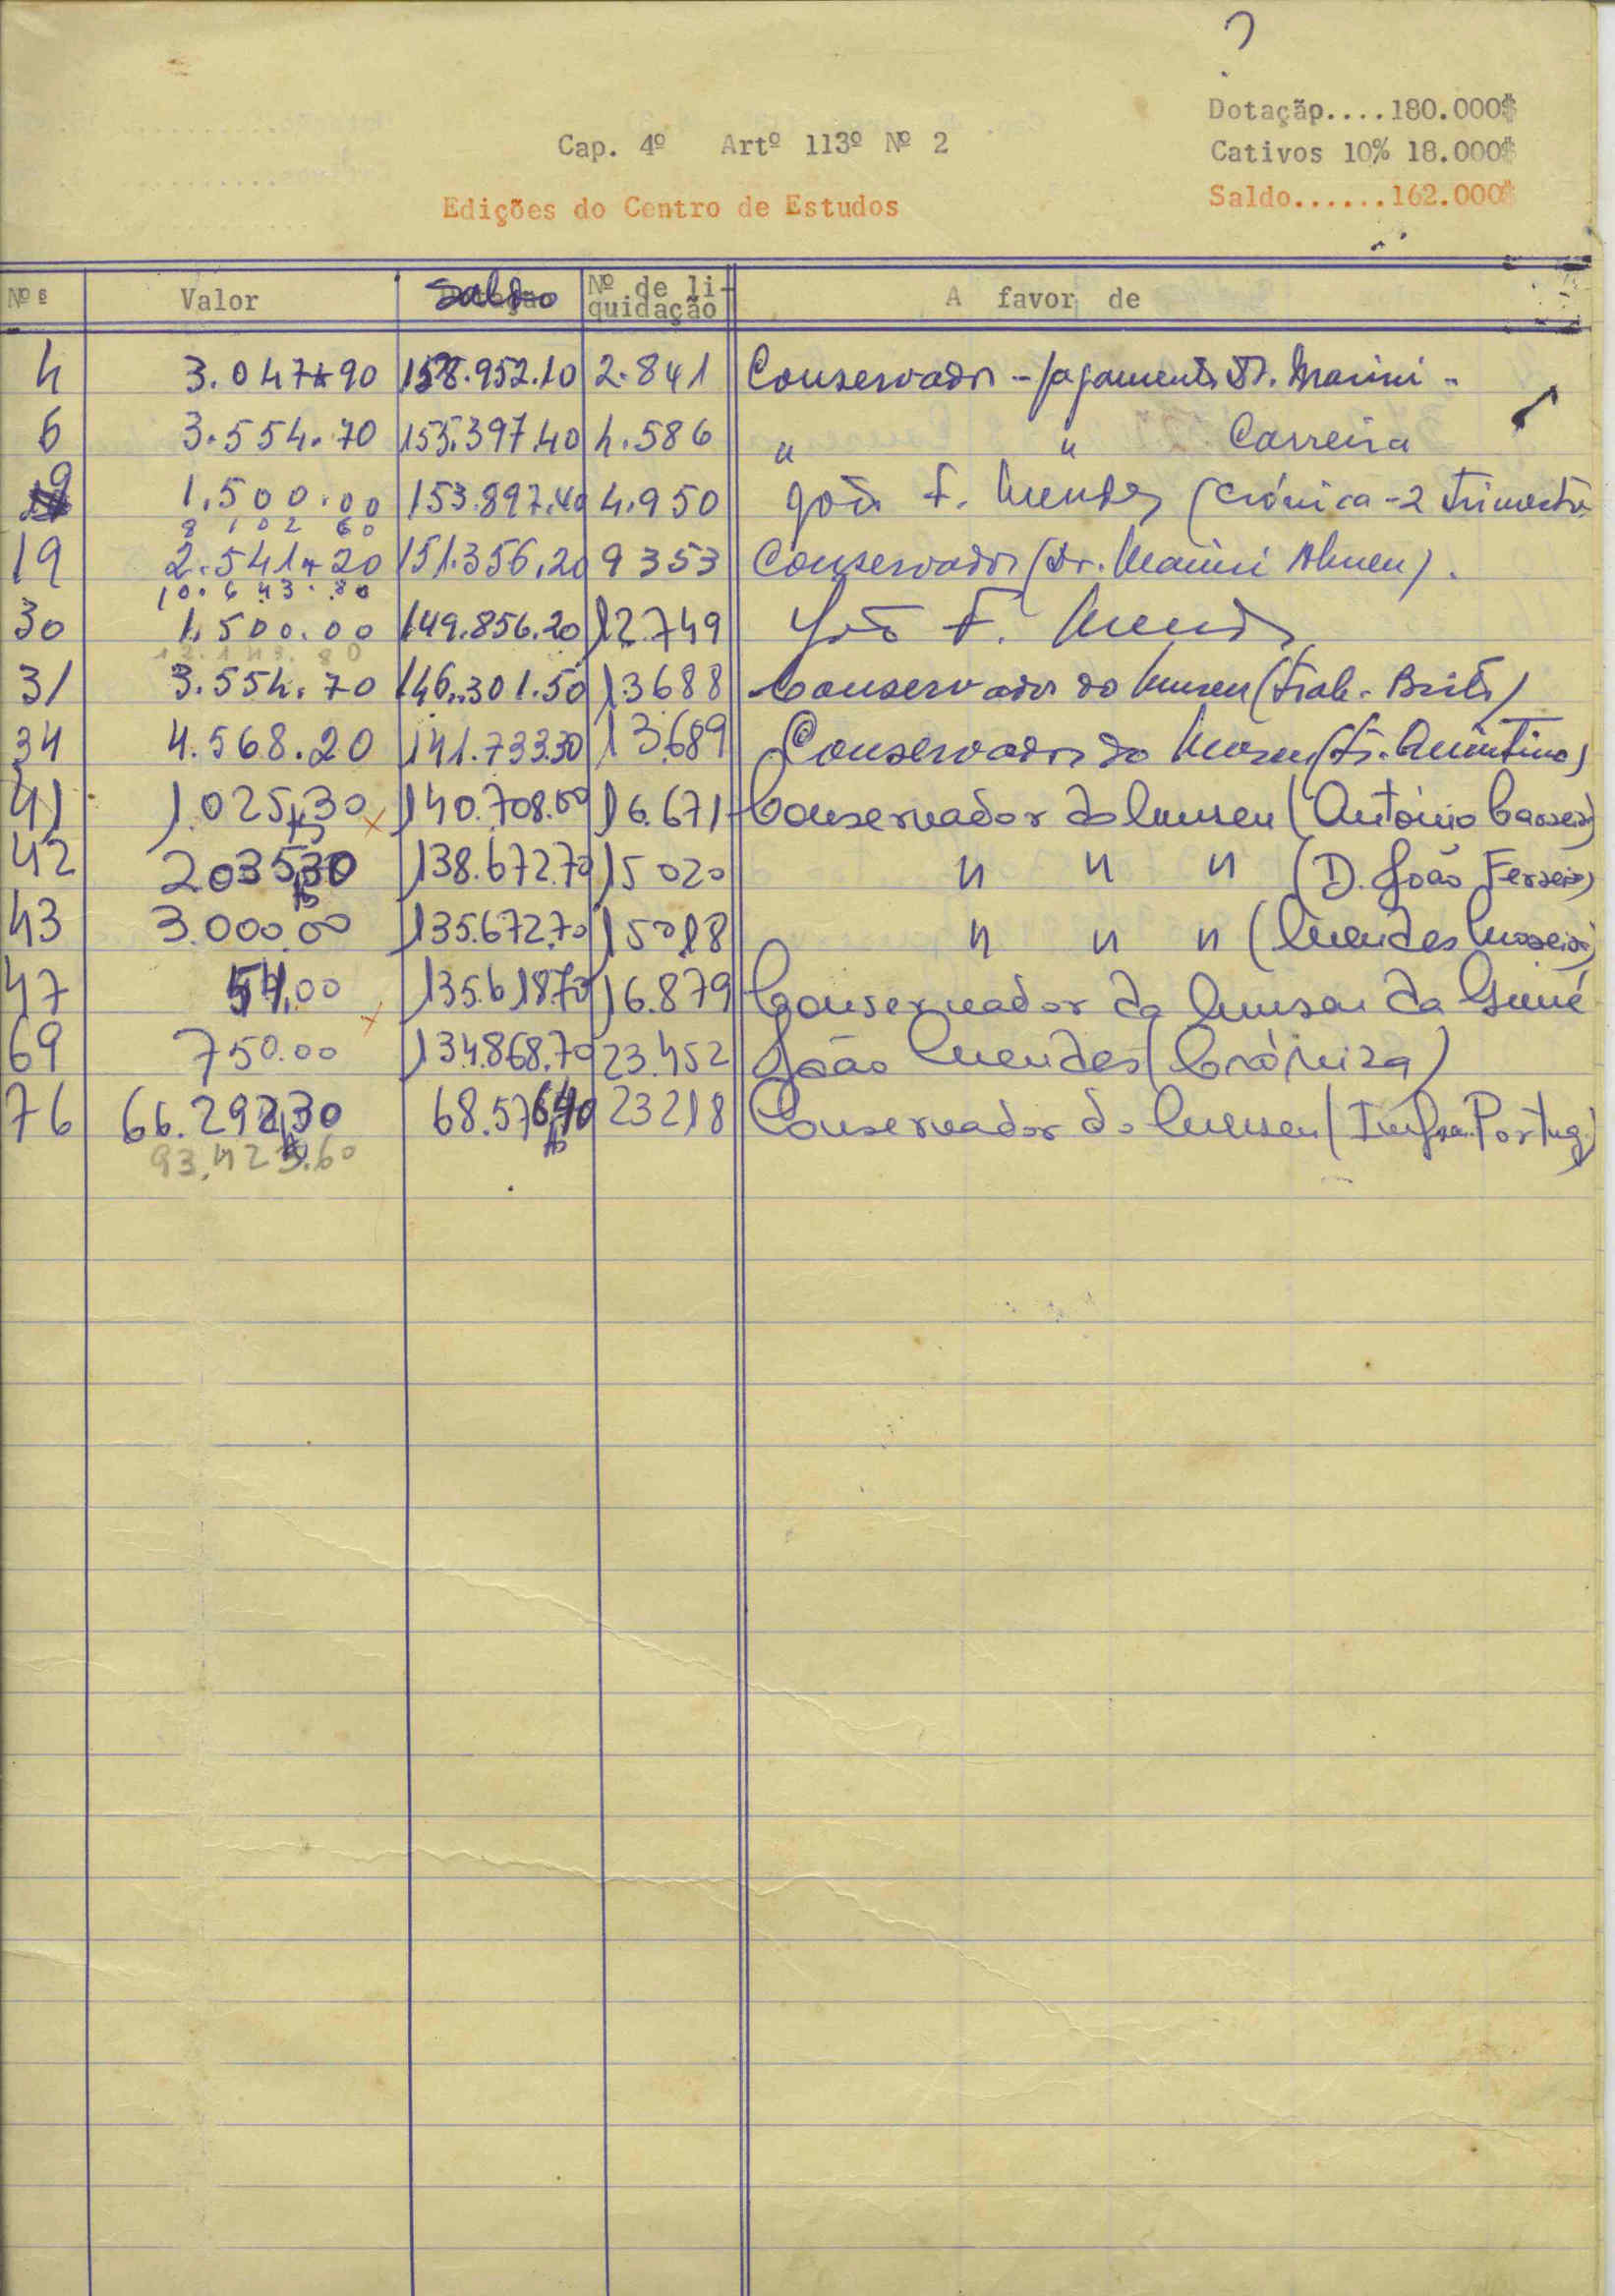 ?
Dotaçãp....180.000$
Cap. 4º Artº 113º Nº 2
Cativos 10% 18.000$
Edições do Centro de Estudos
Saldo......162.000$
Nºs Valor Saldo Nº de li-
quidação A favor de
4 3.047$90 158.952.10 2.841 Conservador - pagamento Dr. Marini -
6 3.554.70 155.397.40 4.586 " " Carreira
9 1.500.00 153.897.40 4.950 João F. Mendes (Crónica - 2 Trimestre
8 102 60
19 2.541$20 151.356.20 9353 Conservador (Dr. Marini Abreu).
10.643.80
30 1.500.00 149.856.20 12.749 João F. Mendes
12.143.80
31 3.554.70 146.301.50 13688 Conservador do Museu (Trab. Brito)
34 4.568.20 141.733.30 13.689 Conservador do Museu (Fr. Quintino)
41 1.025,30 140.708.00 16.671 Conservador do Museu (António Carreira)
42 2035,30 138.672.70 15020 " " " (D. João Ferreira)
43 3.000.00 135.672,70 15018 " " " (Mendes Moreira)
47 54.00 135.618.70 16.879 Conservador do Museu da Guiné
69 750.00 134.868,70 23.452 João Mendes (Crónica)
76 66.292,30 68.576,40 23218 Conservador do Museu (Impr. Portug.)
93.423.60